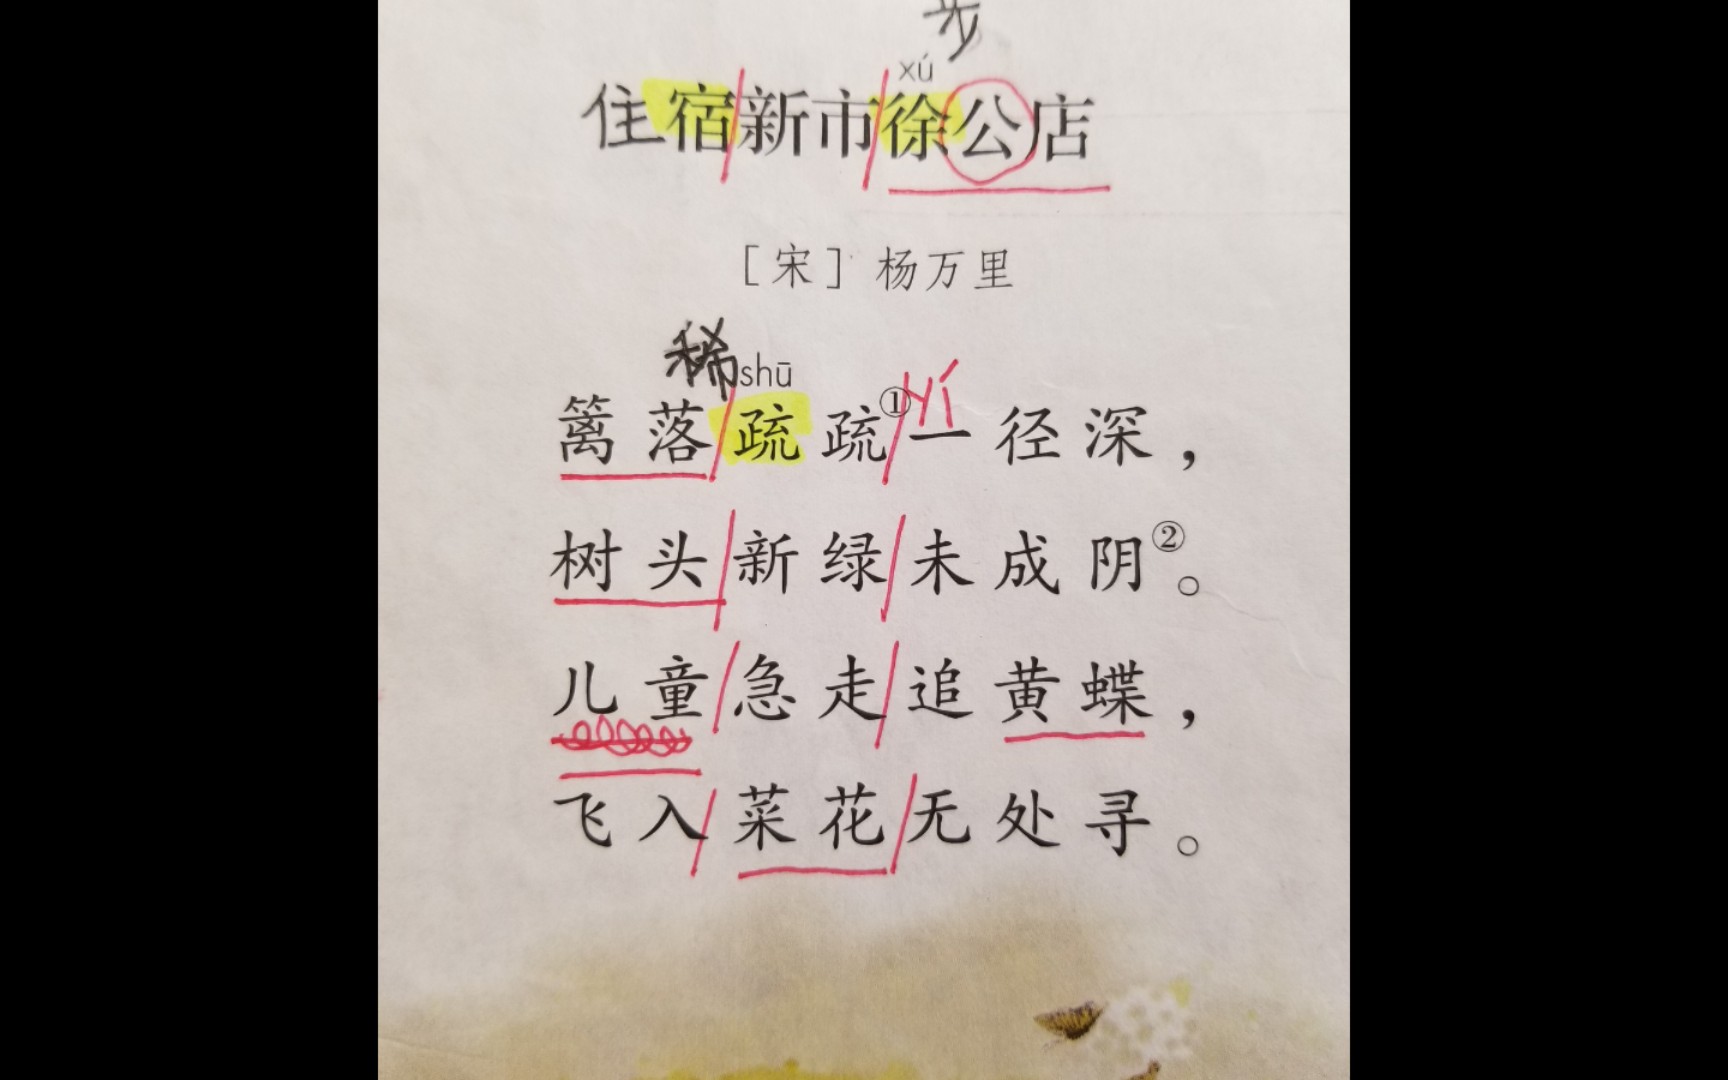 步
xú
住宿新市徐公店
［宋］杨万里
稀 shū yí
篱落疏疏①一径深，
树头新绿未成阴②。
儿童急走追黄蝶，
飞入菜花无处寻。